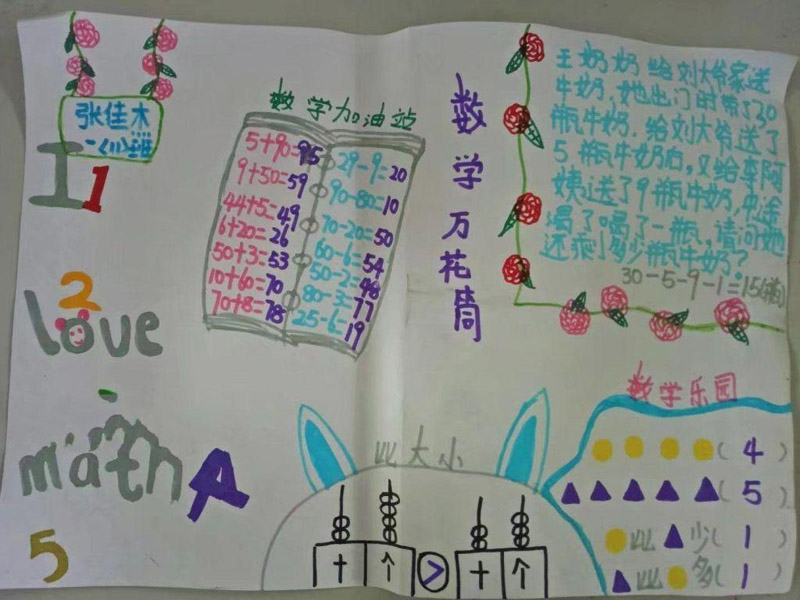 张佳木
一(11)班
I 1
2
love
math
4
5
数学加油站
5+90=95
9+50=59
44+5=49
6+20=26
50+3=53
10+60=70
70+8=78
29-9=20
90-80=10
70-20=50
60-6=54
50-2=48
80-3=77
25-6=19
数学万花筒
王奶奶给刘大爷家送
牛奶,她出门时带了30
瓶牛奶.给刘大爷送了
5瓶牛奶后,又给李阿
姨送了9瓶牛奶,中途
渴了喝了一瓶,请问她
还剩多少瓶牛奶?
30-5-9-1=15(瓶)
比大小
十 个 > 十 个
数学乐园
( 4 )
( 5 )
比 少( 1 )
比 多( 1 )